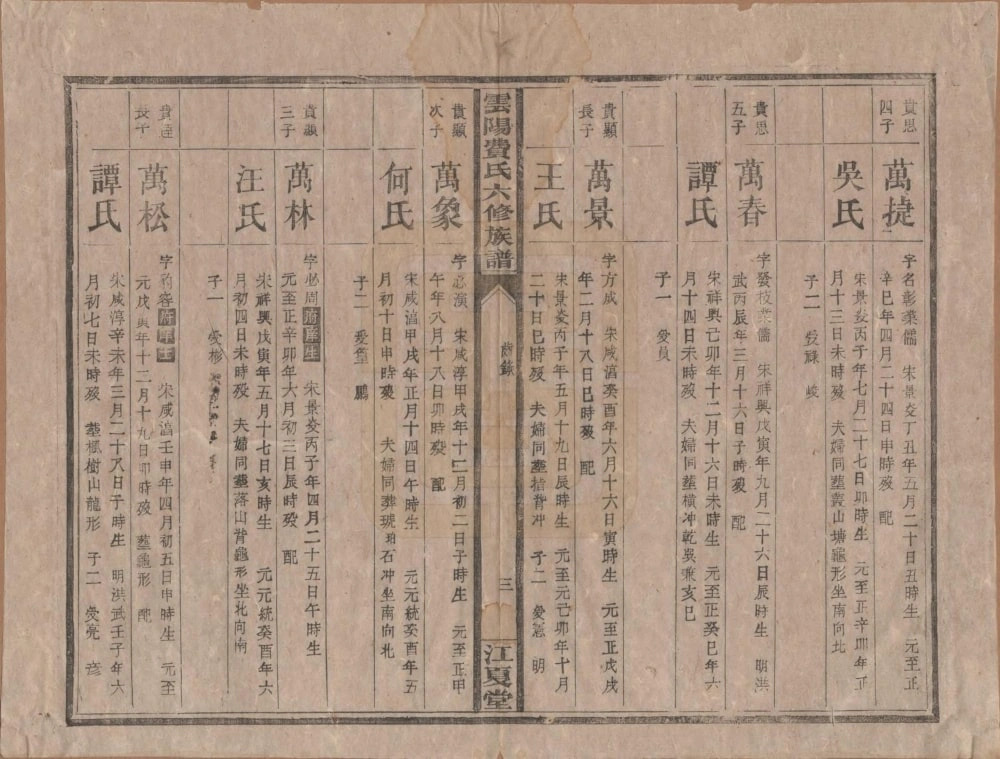 貴思四子
萬捷
字名彰業儒 宋景炎丁丑年五月二十日丑時生 元至正
辛巳年四月二十四日申時殁 配
吳氏
宋景炎丙子年七月二十七日卯時生 元至正辛卯年正
月十三日未時殁 夫婦同塟叢山塘龜形坐南向北
子二 愛祿 峻
貴思五子
萬春
字發枝業儒 宋祥興戊寅年九月二十六日辰時生 明洪
武丙辰年三月十六日子時殁 配
譚氏
宋祥興己卯年十二月十六日未時生 元至正癸巳年六
月十四日未時殁 夫婦同塟橫冲乾巽兼亥巳
子一 愛貟
貴顯長子
萬景
字方成 宋咸滔癸酉年六月十六日寅時生 元至正戊戌
年二月十八日巳時殁 配
王氏
宋景炎丙子年五月十九日辰時生 元至元己卯年十月
二十日巳時殁 夫婦同塟楷背冲 子二 愛憲 明
雲陽費氏六修族譜
齒錄
三
江夏堂
貴顯次子
萬象
字必濱 宋咸淳甲戌年十二月初二日子時生 元至正甲
午年八月十八日卯時殁 配
何氏
宋咸滔甲戌年正月十四日午時生 元元統癸酉年五
月初十日申時殁 夫婦同葬琥珀石冲坐南向北
子二 愛 鵬
貴顯三子
萬林
字必周 附庠生 宋景炎丙子年四月二十五日午時生
元至正辛卯年六月初三日辰時殁 配
汪氏
宋祥興戊寅年五月十七日亥時生 元元統癸酉年六
月初四日未時殁 夫婦同塟落山背龜形坐北向南
子一 愛彬
貴達長子
萬松
字 容 附庠生 宋咸滔壬申年四月初五日申時生 元至
元戊寅年十二月十九日卯時殁 塟龜形 配
譚氏
宋咸淳辛未年三月二十八日子時生 明洪武壬子年六
月初七日未時殁 塟楓樹山龍形 子二 愛亮 彦